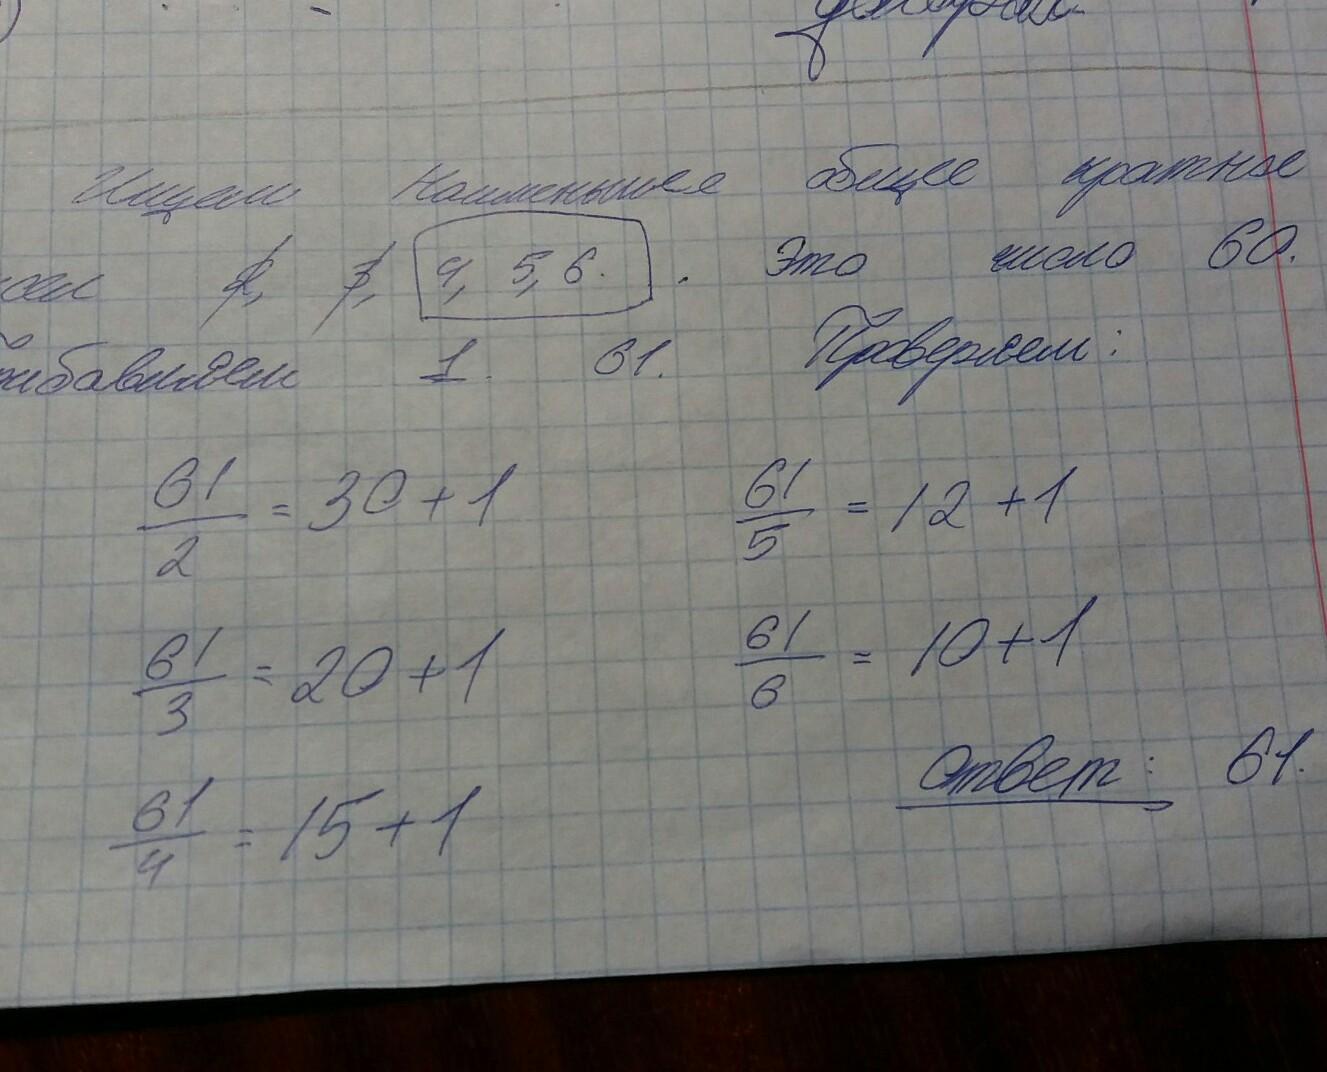 Ищем наименьшее общее кратное
2, 3, 4, 5, 6. Это число 60.
Прибавляем 1. 61. Проверяем:
61/2 = 30 + 1
61/5 = 12 + 1
61/3 = 20 + 1
61/6 = 10 + 1
61/4 = 15 + 1
Ответ: 61.